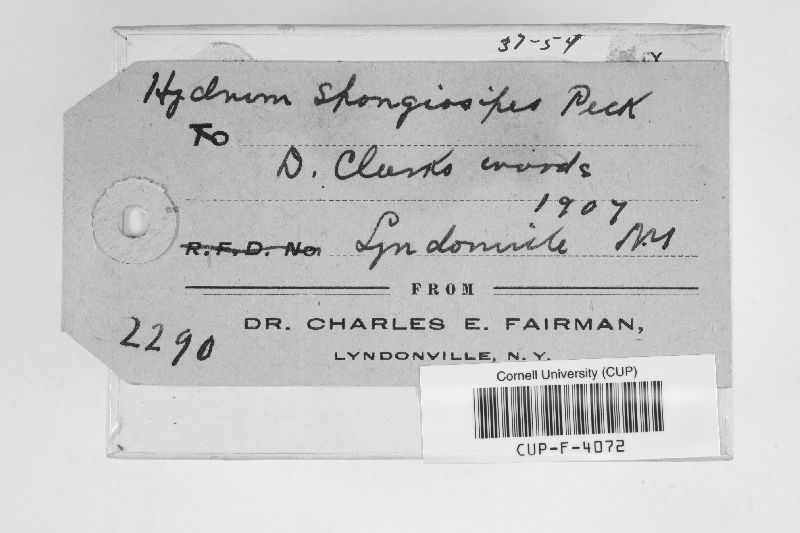 37-54
Hydnum Spongiosipes Peck
To
D. Clarks woods
1907
R. F. D. No. Lyndonville N.Y
FROM
DR. CHARLES E. FAIRMAN,
LYNDONVILLE, N. Y.
2290
Cornell University (CUP)
CUP-F-4072